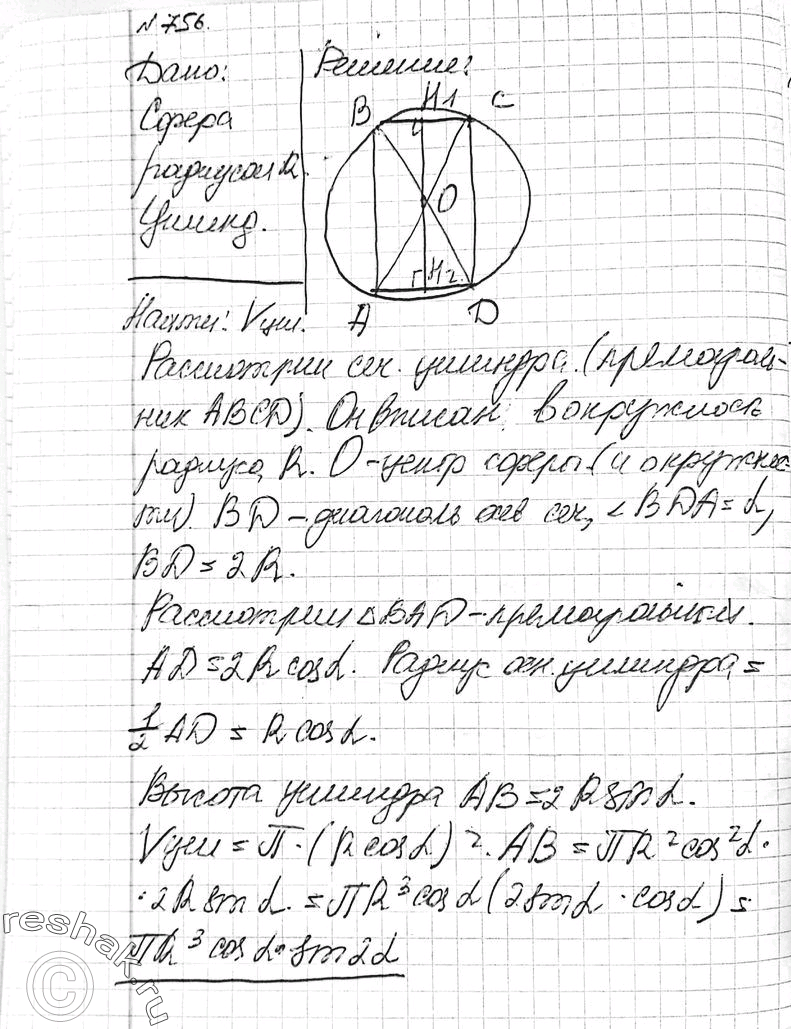 N 756.
Дано:
Решение:
Сфера
радиусом R.
Цилинд.
Найти: Vцил.
B H1 C
O
A H2 D
Рассмотрим сеч. цилиндра (прямоуголь-
ник ABCD). Он вписан в окружность
радиуса R. O - центр сферы (и окружнос-
ти). BD - диагональ осев сеч, ∠BDA = α,
BD = 2R.
Рассмотрим △BAD - прямоугольный.
AD = 2R cosα. Радиус осн. цилиндра =
1/2 AD = R cosα.
Высота цилиндра AB = 2R sinα.
Vцил = π · (R cosα)². AB = πR² cos²α ·
· 2R sinα = πR³ cosα (2sinα · cosα) =
πR³ cosα · sin2α
© reshak.ru